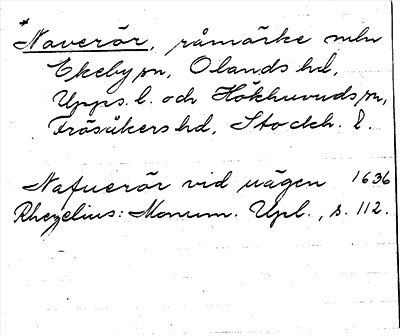 *Naverör, råmärke mln
Ekeby sn, Olands hd,
Upps. l. och Hökhuvuds sn,
Frösåkers hd, Stockh. l.
Nafuerör vid vägen 1636
Rhezelius: Monum. Upl., s. 112.